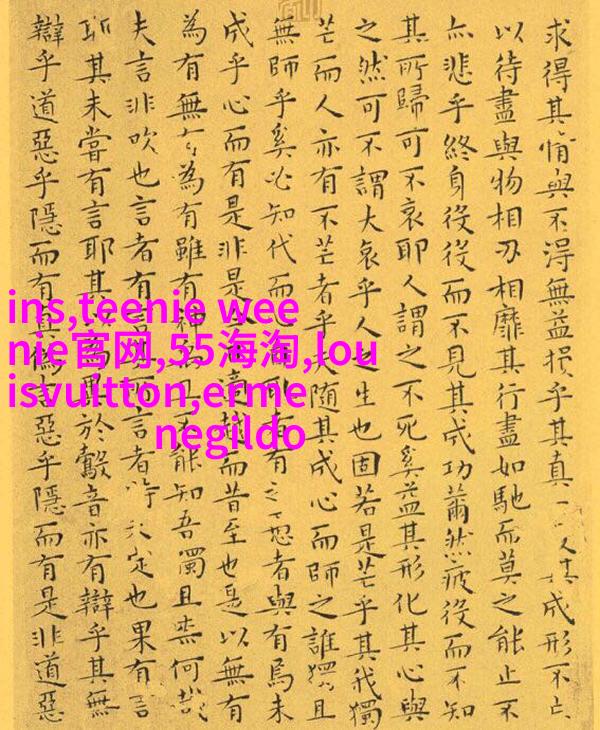 求得其情與不得無益損乎其真一其成形不亡
以待盡與物相刃相靡其行盡如馳而莫之能止不
亦悲乎終身役役而不見其成功薾然疲役而不知
其所歸可不哀耶人謂之不死奚益其形化其心與
之然可不謂大哀乎人之生也固若是芒乎其我獨
芒而人亦有不芒者乎夫隨其成心而師之誰獨且
無師乎奚必知代而心有之愚者與有焉未
成乎心而有是非是越而昔至也是以無有
為有無〻為有雖有神能知吾獨且柰何哉
夫言非吹也言者有言者特未定也果有言
耶其未嘗有言耶其為異於鷇音亦有辯乎其無
辯乎道惡乎隱而有真偽惡乎隱而有是非道惡
ins,teenie wee
nie官网,55海淘,lou
isvuitton,erme
negildo